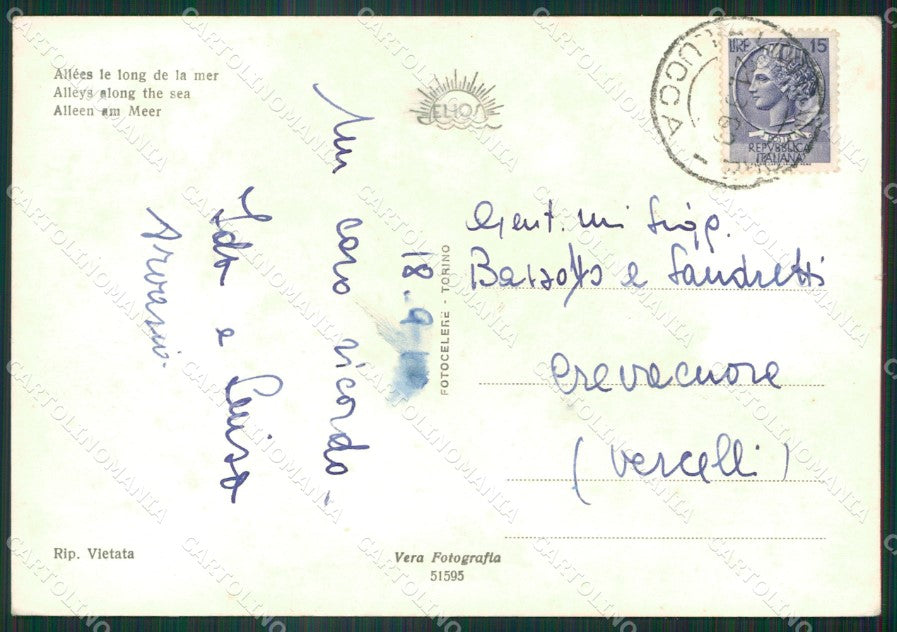 Allées le long de la mer
Alleys along the sea
Alleen am Meer
ELIOS
LIRE 15
REPVBBLICA
ITALIANA
LUCCA
Un
caro ricordo -
18-9-
Ida e Luisa
FOTOCELERE - TORINO
Gent. mi Sigg.
e Sandretti
Crevacuore
(Vercelli)
Rip. Vietata
Vera Fotografia
51595
CARTOLINOMANIA